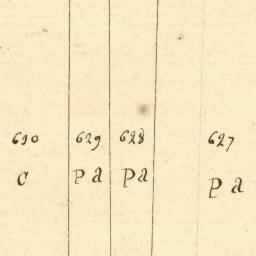 630 629 628 627
c pa pa pa